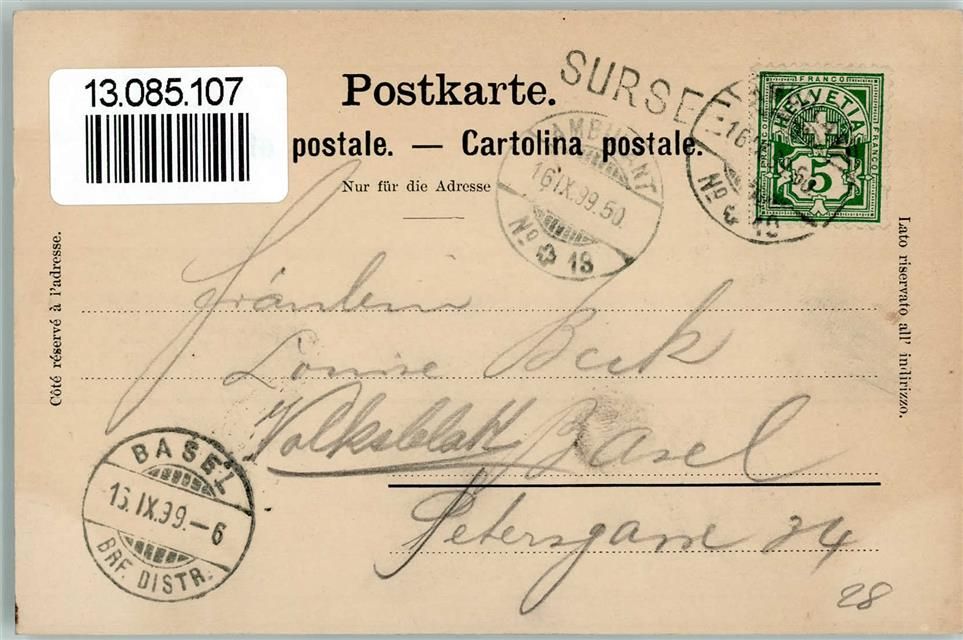 13.085.107
Postkarte.
postale. — Cartolina postale.
Nur für die Adresse
SURSEE
AMBULANT
16 IX.99.50.
No 18
No 18
FRANCO
HELVETIA
FRANCO
FRANCO
5
Côté réservé à l'adresse.
Lato riservato all' indirizzo.
Fräulein
Louise Beck
Volksblatt Basel
Petersgasse 34
BASEL
16.IX.99.–6
BRF. DISTR.
28